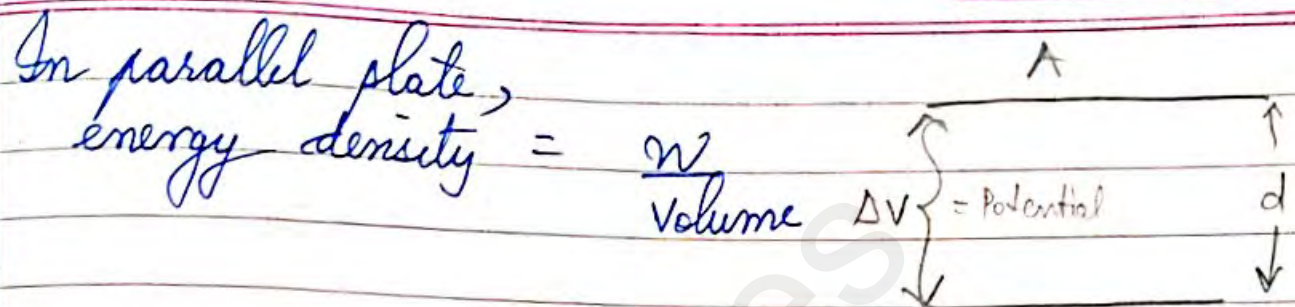 In parallel plate,
energy density = W
Volume
A
ΔV = Potential
d